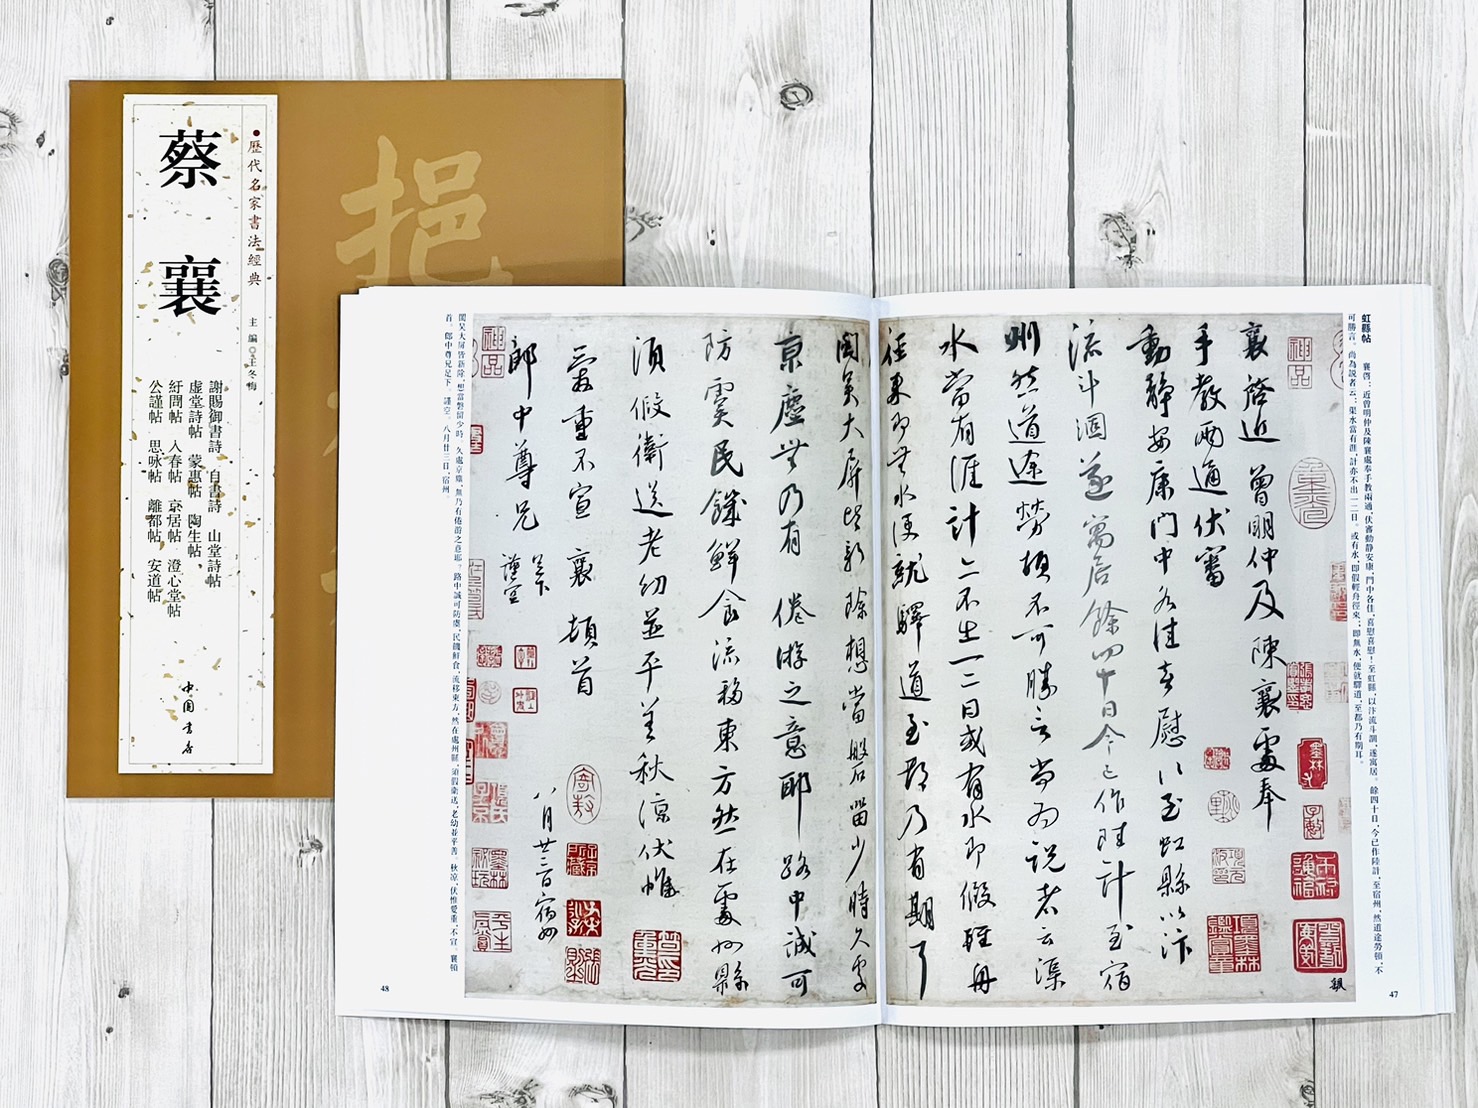 歷代名家書法經典
主編◎王冬梅
蔡襄
謝賜御書詩 自書詩 山堂詩帖
虛堂詩帖 蒙惠帖 陶生帖
紆問帖 入春帖 京居帖 澄心堂帖
公謹帖 思咏帖 離都帖 安道帖
中國書店
挹
虹縣帖 襄啓：近曾明仲及陳襄處奉手教兩通，伏審動静安康，門中各佳，喜慰喜慰！至虹縣，以汴流斗涸，遂寓居。餘四十日，今已作陸計，至宿州，然道途勞頓，不
可勝言。尚為説者云：渠水當有涯，計亦不出一二日。或有水，即假輕舟徑來；即無水，便就驛道，至都乃有期耳。
襄啓近曾明仲及陳襄處奉
手教兩通伏審
動静安康門中各佳喜慰
至虹縣以汴
流斗涸遂寓居餘四十日今已作陸計至宿
州然道途勞頓不可勝言尚為説者云渠
水當有涯計亦不出一二日或有水即假輕舟
徑來即無水便就驛道至都乃有期耳
閩吴大屏皆新除想當磐留少時久處
京塵無乃有倦游之意耶路中誠可
防虞民饑鮮食流移東方然在處州縣
須假衛送老幼並平善秋凉伏惟
愛重不宣襄頓首
郎中尊兄足下謹空
八月廿三日宿州
閩吴大屏皆新除，想當磐留少時，久處京塵，無乃有倦游之意耶？路中誠可防虞，民饑鮮食，流移東方，然在處州縣，須假衛送，老幼並平善。秋凉，伏惟愛重，不宣。襄頓
首。郎中尊兄足下。謹空。八月廿三日，宿州。
48
47